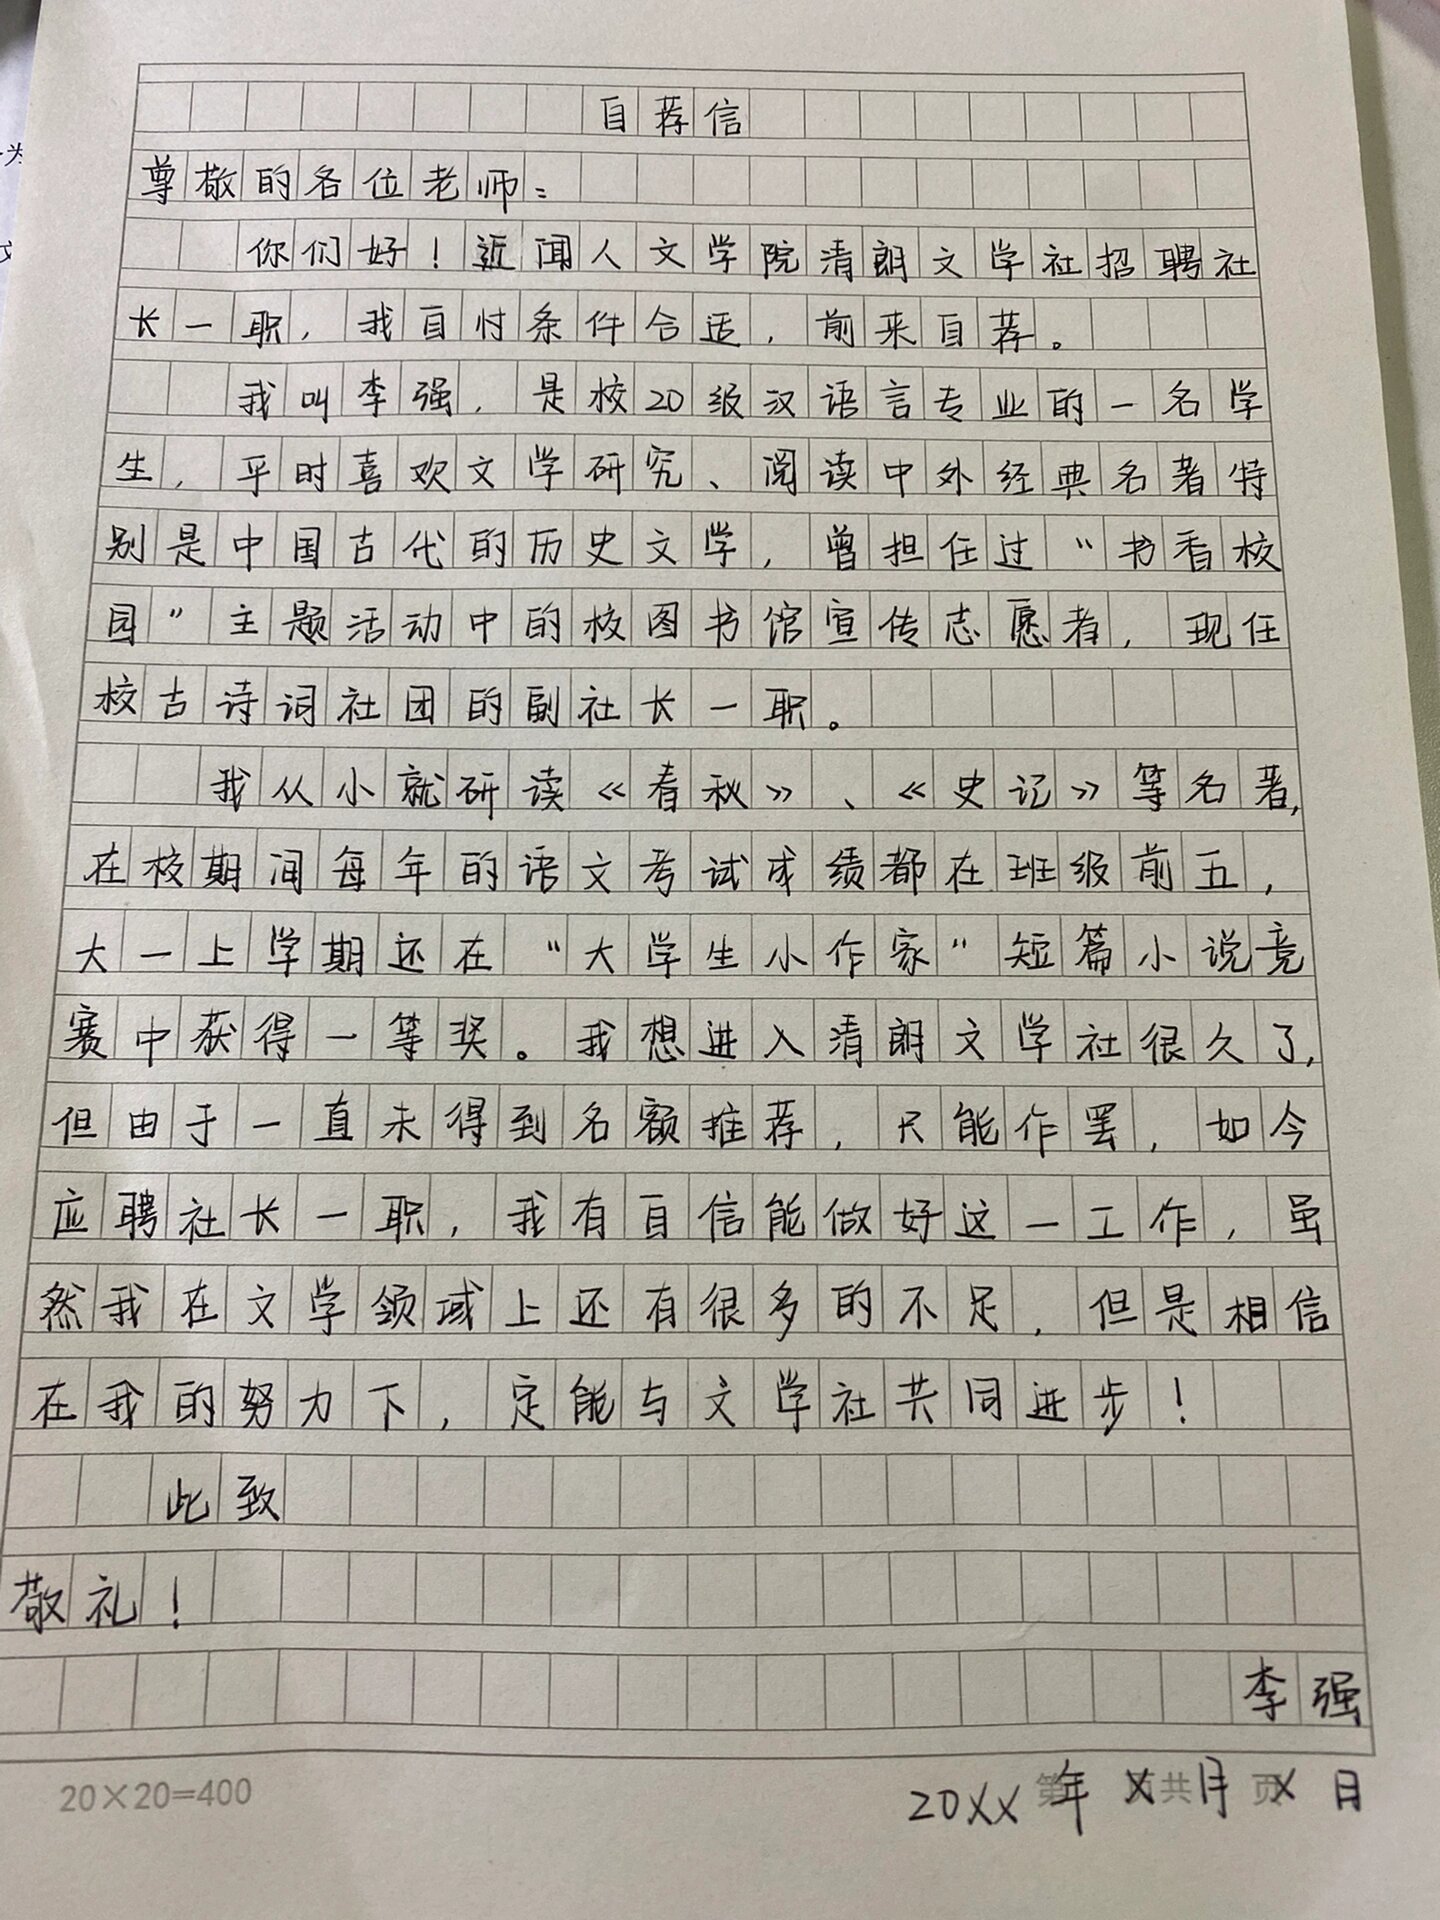 自荐信
尊敬的各位老师：
你们好！近闻人文学院清朗文学社招聘社
长一职，我自忖条件合适，前来自荐。
我叫李强，是校20级汉语言专业的一名学
生，平时喜欢文学研究、阅读中外经典名著特
别是中国古代的历史文学，曾担任过“书香校
园”主题活动中的校图书馆宣传志愿者，现任
校古诗词社团的副社长一职。
我从小就研读《春秋》、《史记》等名著，
在校期间每年的语文考试成绩都在班级前五，
大一上学期还在“大学生小作家”短篇小说竞
赛中获得一等奖。我想进入清朗文学社很久了，
但由于一直未得到名额推荐，只能作罢，如今
应聘社长一职，我有自信能做好这一工作，虽
然我在文学领域上还有很多的不足，但是相信
在我的努力下，定能与文学社共同进步！
此致
敬礼！
李强
20XX年X月X日
20×20=400
第 页共 页